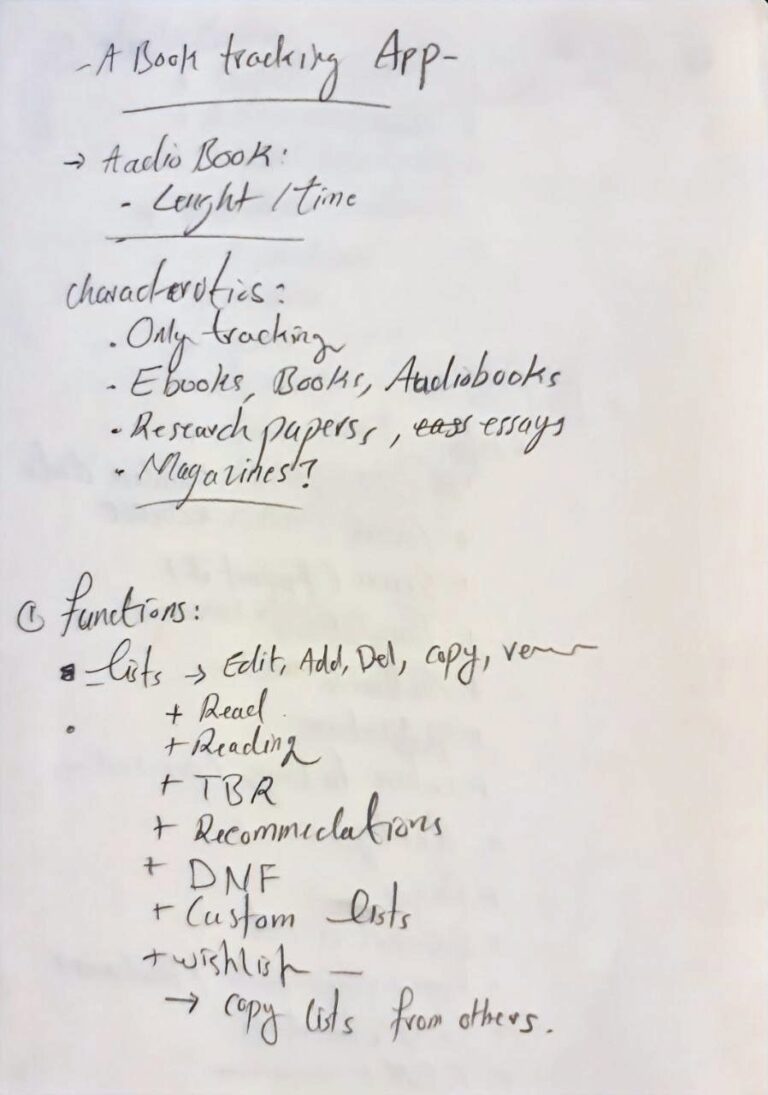 - A Book tracking App -
→ Audio Book:
- Lenght / time
characterotics:
. Only tracking
- Ebooks, Books, Audiobooks
- Research papers, , eass essays
- Magazines?
① functions:
- lists → Edit, Add, Del, copy,
+ Read
+ Reading
+ TBR
+ Recommedations
+ DNF
+ Custom lists
+ wishlist —
→ copy lists from others.